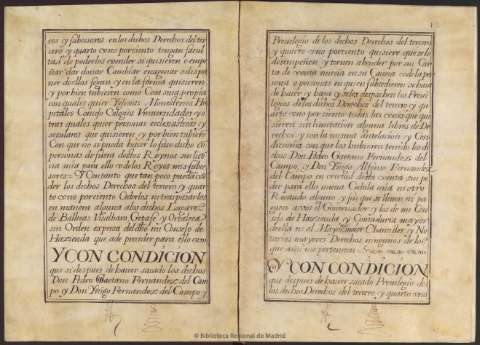 ros y subcesores en los dichos Derechos del ter
cero y quarto uno por ciento tengan facul
tad de poderlos vender si quisieren o empe
ñar dar donar Cambiar enagenar o dispo
ner dellos segun y en la forma quisieren
y por bien tubieren como Cosa suya propia
con quales quier Yglesias Monasterios Ho
spitales Concejos Colegios Universidades y o
tras quales quier personas eclesiasticas y
seglares que quisieren y por bien tubieren
Con que no se pueda hacer lo suso dicho co
personas de fuera destos Reynos sin licen
cia mia para ello o de los Reyes mis subce
sores Y Con tanto que tan poco pueda
der los dichos Derechos del tercero y quar
to uno por ciento Cobrarlos ni traspasarlos
en manera alguna a los dichos Lugares
de Ballecas Vicalbaro Getafe y Ortaleza
sin Orden expresa del dicho mi Consejo de
Hazienda que ade preceder para ello con
Y CON CONDICION
que si despues de haver sacado los dichos
Don Pedro Gaetano Fernandez del Cam
po, y Don Yñigo Fernandez del Campo y
Privilegio de los dichos Derechos del tercero
y quarto uno por ciento quisiere que se le
desempeñen y tornen a bender por mi Car
ta de venta nueva en su Caveza o de la per
sona o personas en quien subcedieren se haian
de hacer y haga y se les despachen los Privi
legios de los dichos Derechos del tercero y qu
arto uno por ciento todas las veces que qui
sieren sin limitacion alguna libres de De
rechos y con la misma antelacion y Con
diciones con que los hubieren tenido los di
chos Don Pedro Gaetano Fernandez del
Campo, y Don Yñigo Alfonso Fernandez
del Campo en virtud desta venta sin pe
dir para ello nueva Cedula mia ni otro
Recaudo alguno y sin que se lleven ni pi
dan derechos al Governador y los de mi Con
sejo de Hazienda y Contaduria mayor
della ni el Mayordomo Chanciller y No
tarios mayores Derechos ningunos de los
que assi me pertenecen
Y CON CONDICION
que despues de haver sacado Privilegio de
los dichos Derechos del tercero, y quarto uno
© Biblioteca Regional de Madrid